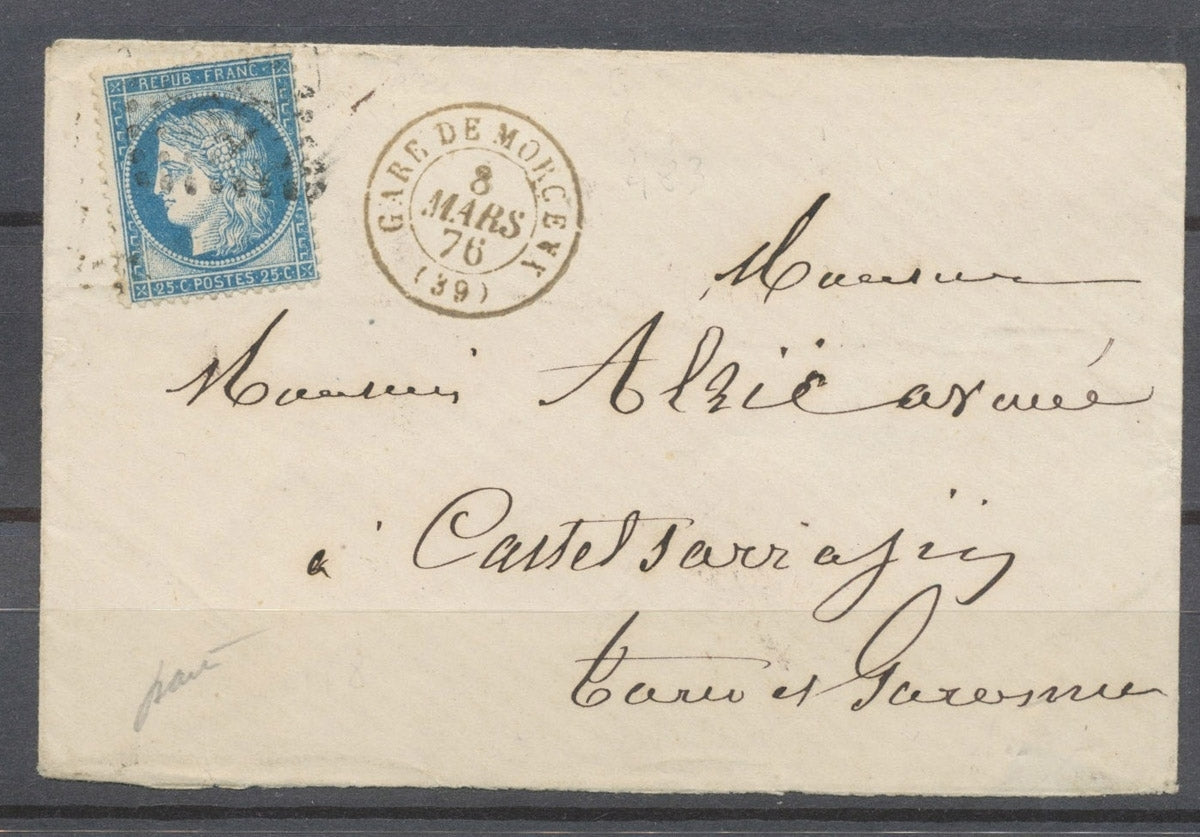 REPUB·FRANC·
25·C·POSTES·25·C·
GARE DE MORCENX
8
MARS
76
(39)
Monsieur
Monsieur Alziё avoué
à Castelsarrasin
tarn et Garonne